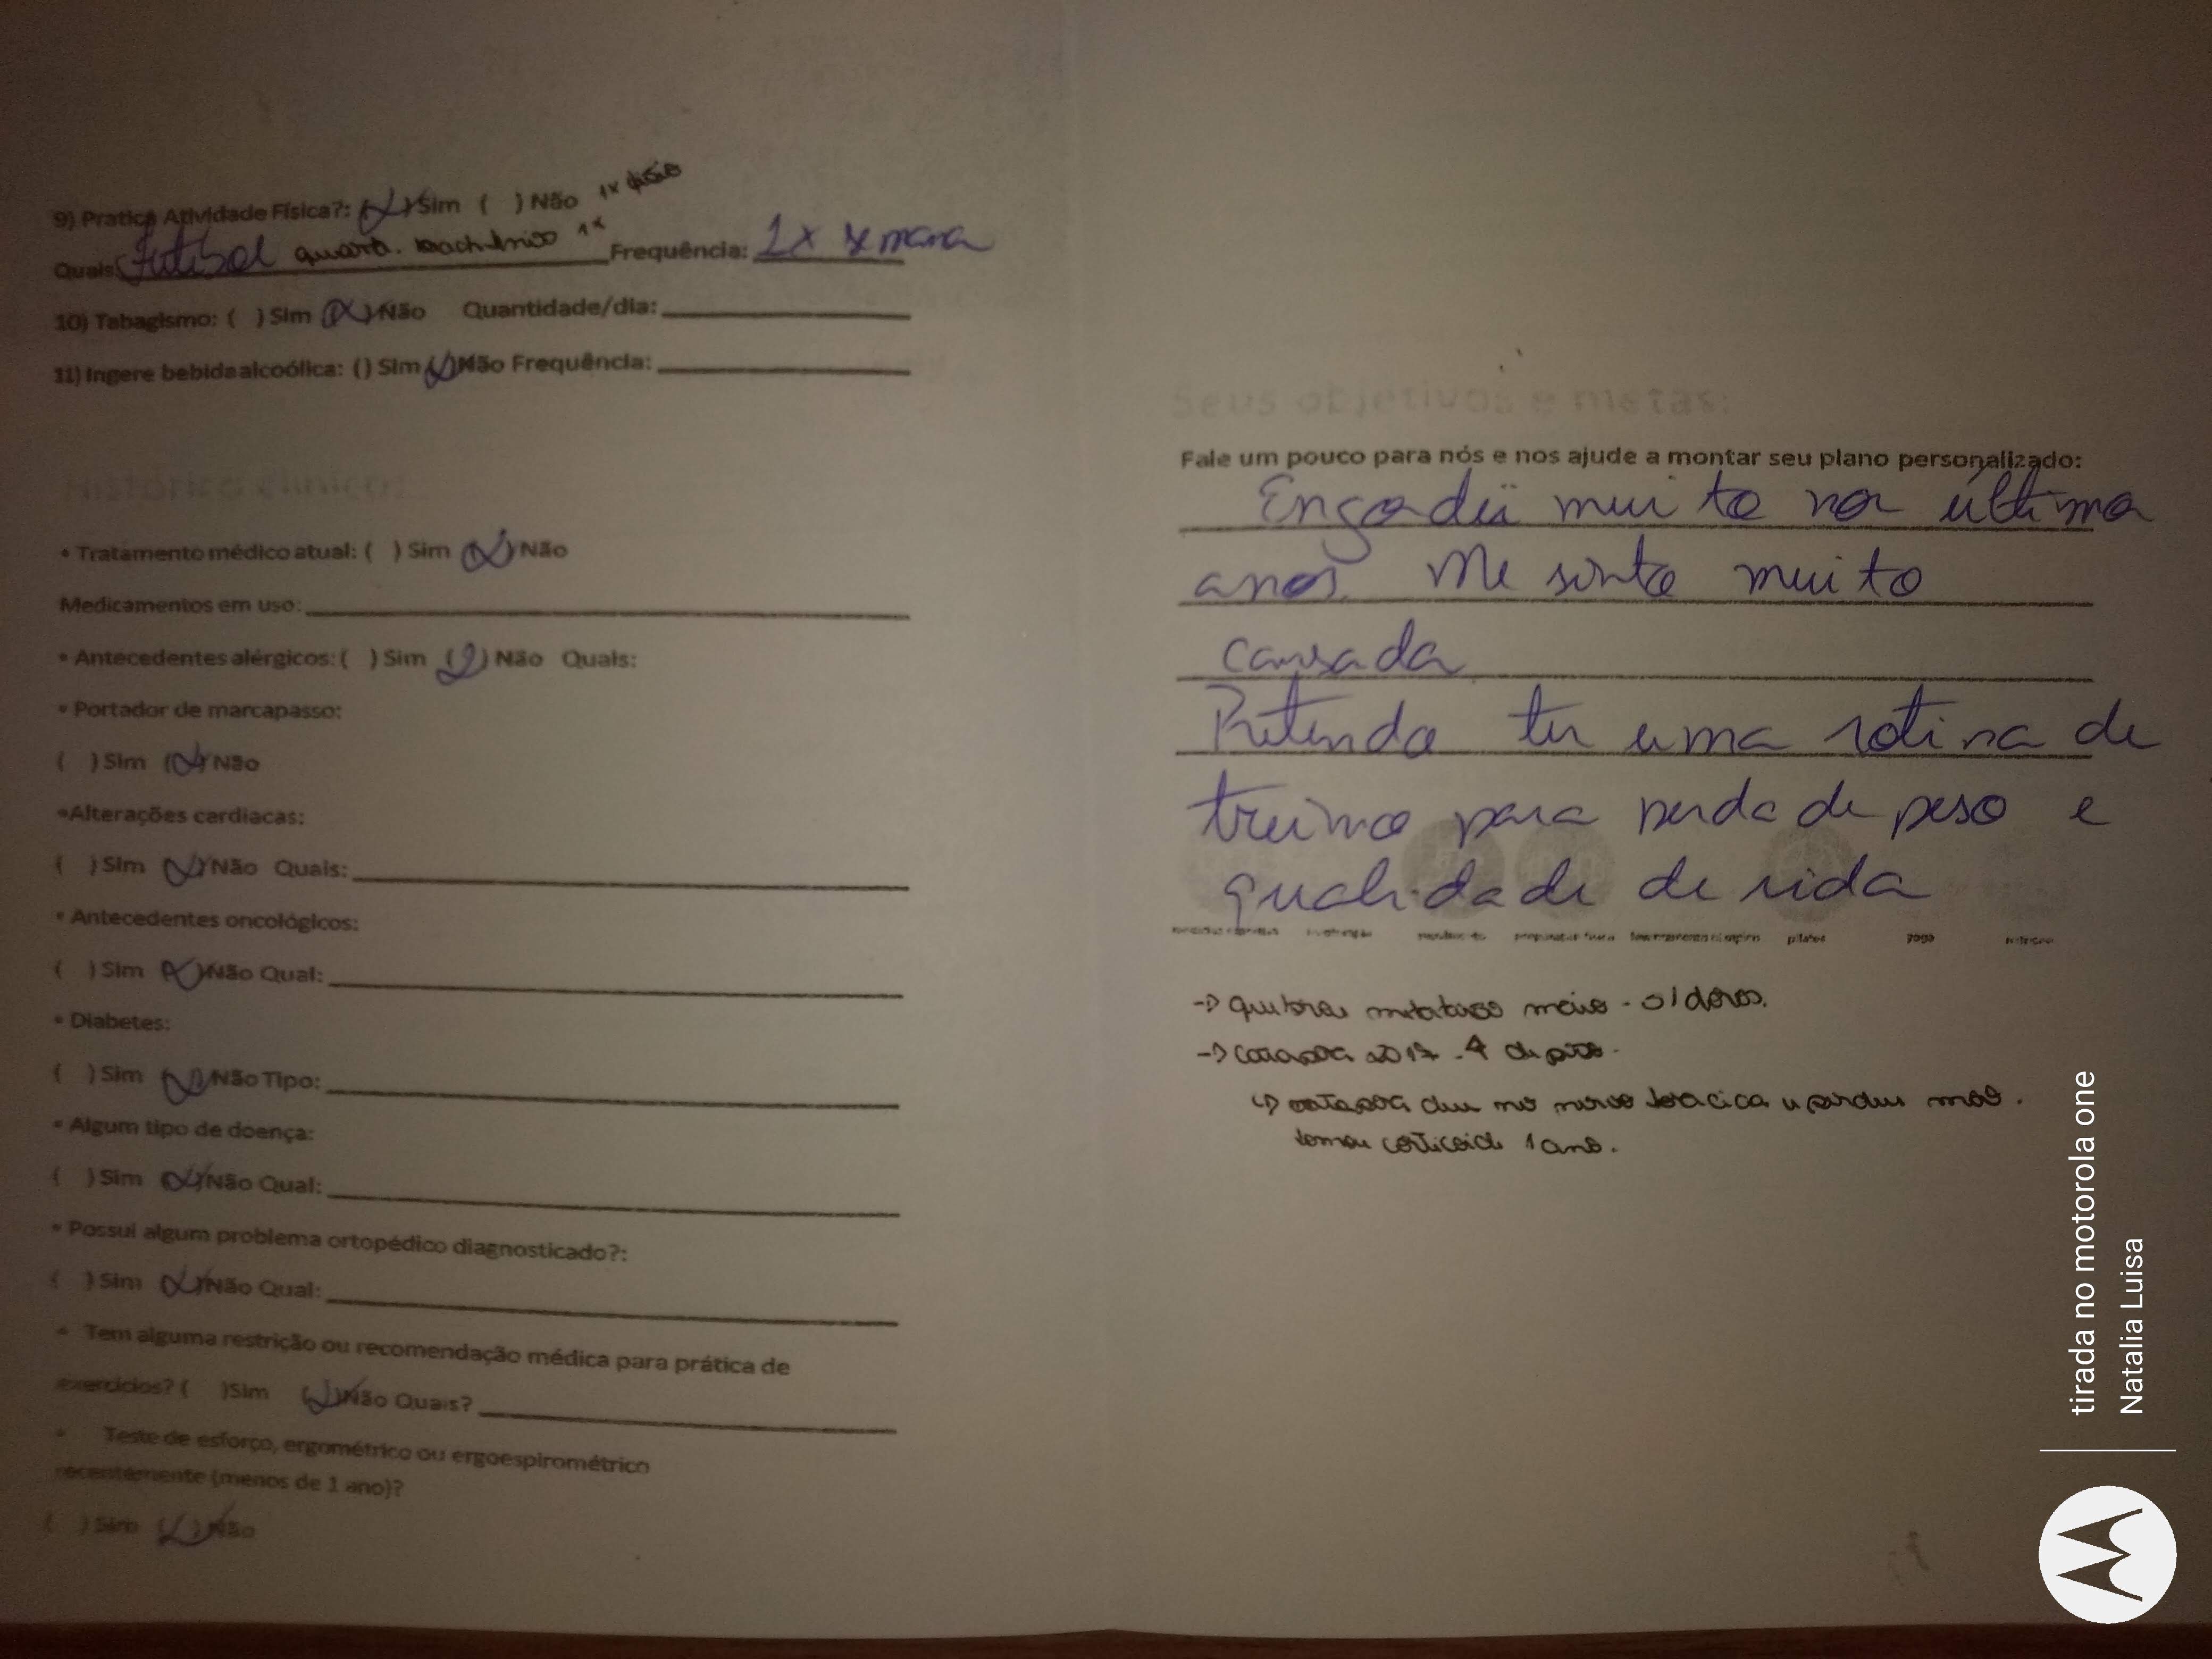 9) Pratica Atividade Física?: (X) Sim ( ) Não 1x
Quais: Futebol quarta. 1x Frequência: 1x semana
10) Tabagismo: ( ) Sim (X) Não Quantidade/dia:
11) Ingere bebida alcoólica: () Sim (X) Não Frequência:
• Tratamento médico atual: ( ) Sim (X) Não
Medicamentos em uso:
• Antecedentes alérgicos: ( ) Sim (X) Não Quais:
• Portador de marcapasso:
( ) Sim (X) Não
•Alterações cardíacas:
( ) Sim (X) Não Quais:
• Antecedentes oncológicos:
( ) Sim (X) Não Qual:
• Diabetes:
( ) Sim (X) Não Tipo:
• Algum tipo de doença:
( ) Sim (X) Não Qual:
• Possui algum problema ortopédico diagnosticado?:
( ) Sim (X) Não Qual:
• Tem alguma restrição ou recomendação médica para prática de
exercícios? ( ) Sim (X) Não Quais?
• Teste de esforço, ergométrico ou ergoespirométrico
recentemente (menos de 1 ano)?
( ) Sim (X) Não
Seus objetivos e metas:
Fale um pouco para nós e nos ajude a montar seu plano personalizado:
Engordei muito nor ultimo
anos, me sinto muito
cansada
Pretendo ter uma rotina de
treino para perda de peso e
qualidade de vida
pilates yoga
-> 
-> 4
↳ dor torácica mas.
1 ano.
tirada no motorola one
Natalia Luisa